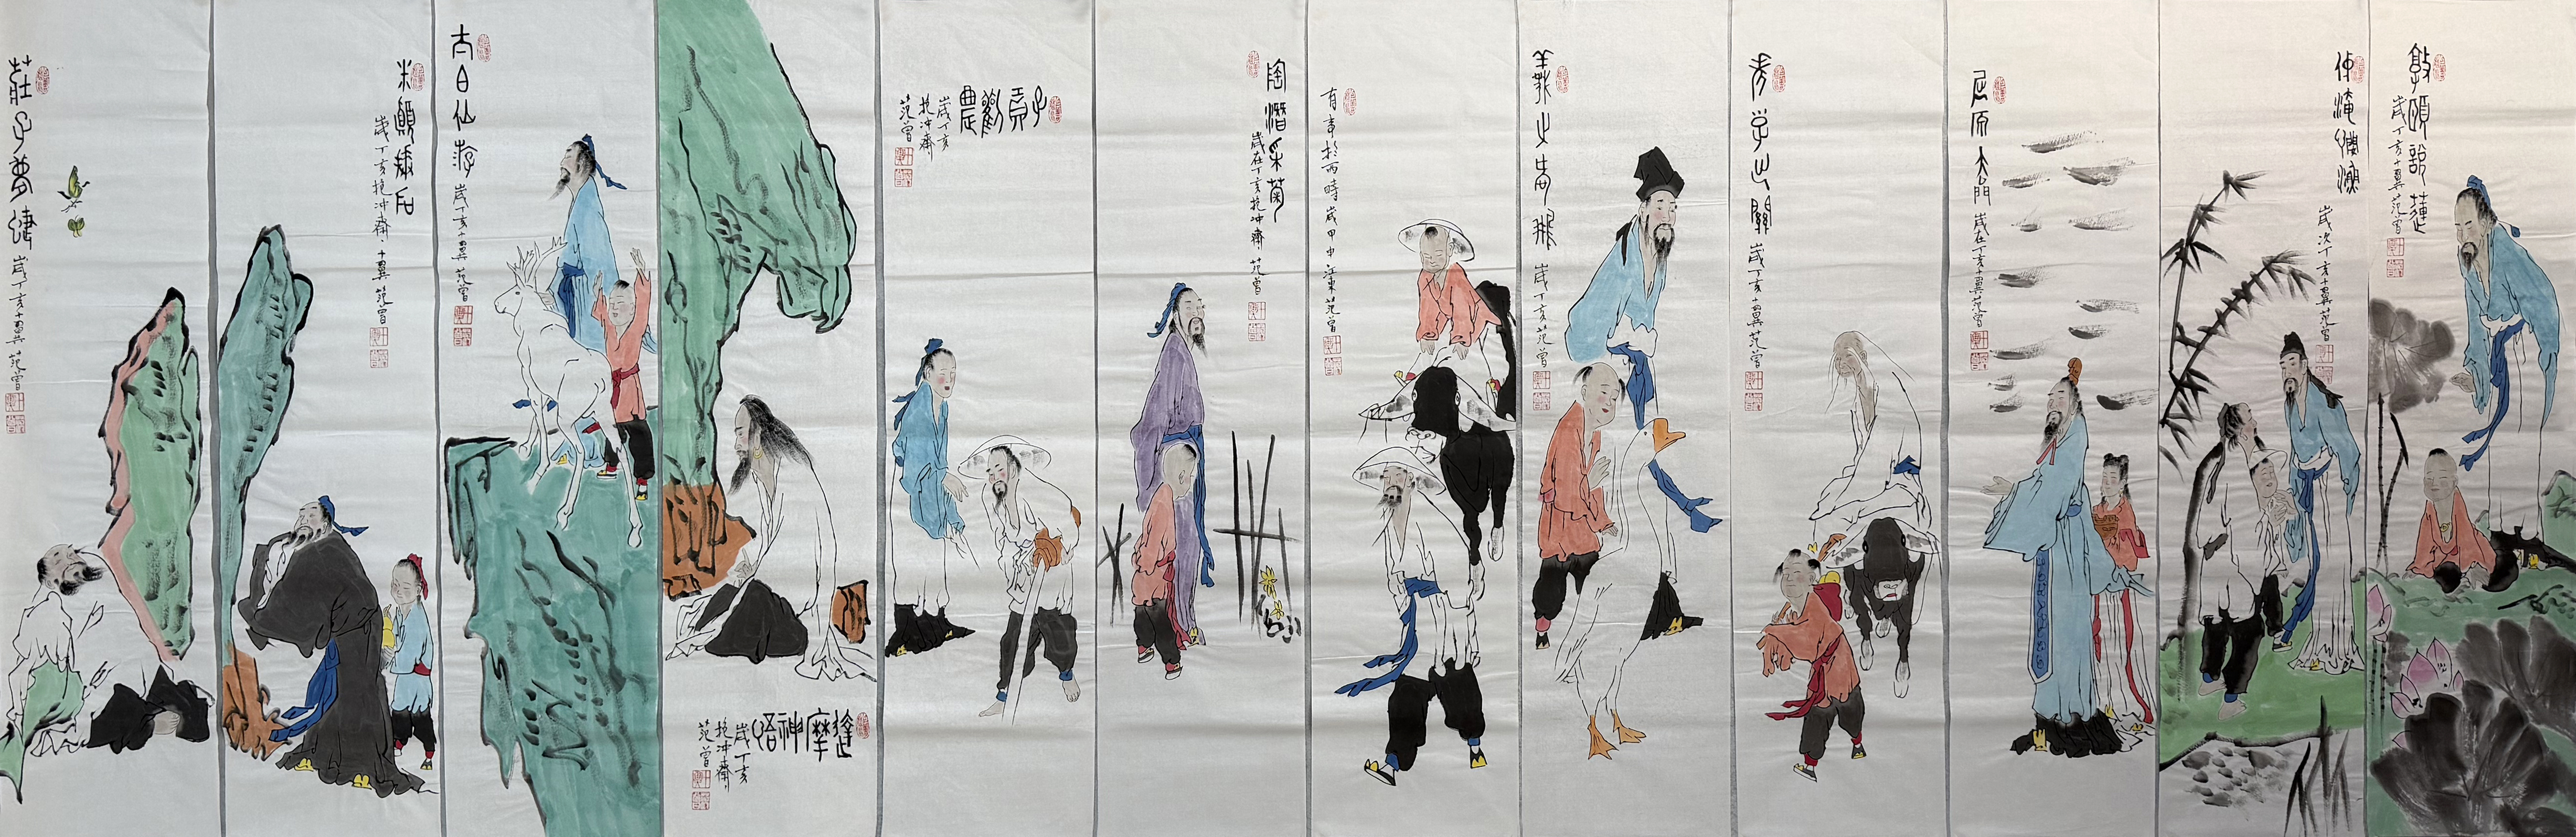 敦頤說蓮
歲丁亥十翼范曾
仲淹憫漁
歲次丁亥十翼范曾
屈原天問 歲在丁亥十翼范曾
老子出關 歲丁亥十翼范曾
羲之愛鵝 歲丁亥范曾
有事於西疇 歲甲申江東范曾
陶潛采菊
歲在丁亥抱冲齋 范曾
子貢勸農
歲丁亥
抱冲齋
范曾
達摩神悟
歲丁亥
抱冲齋
范曾
太白仙游 歲丁亥十翼范曾
米顛拜石
歲丁亥抱冲齋十翼范曾
莊子夢蝶 歲丁亥十翼范曾